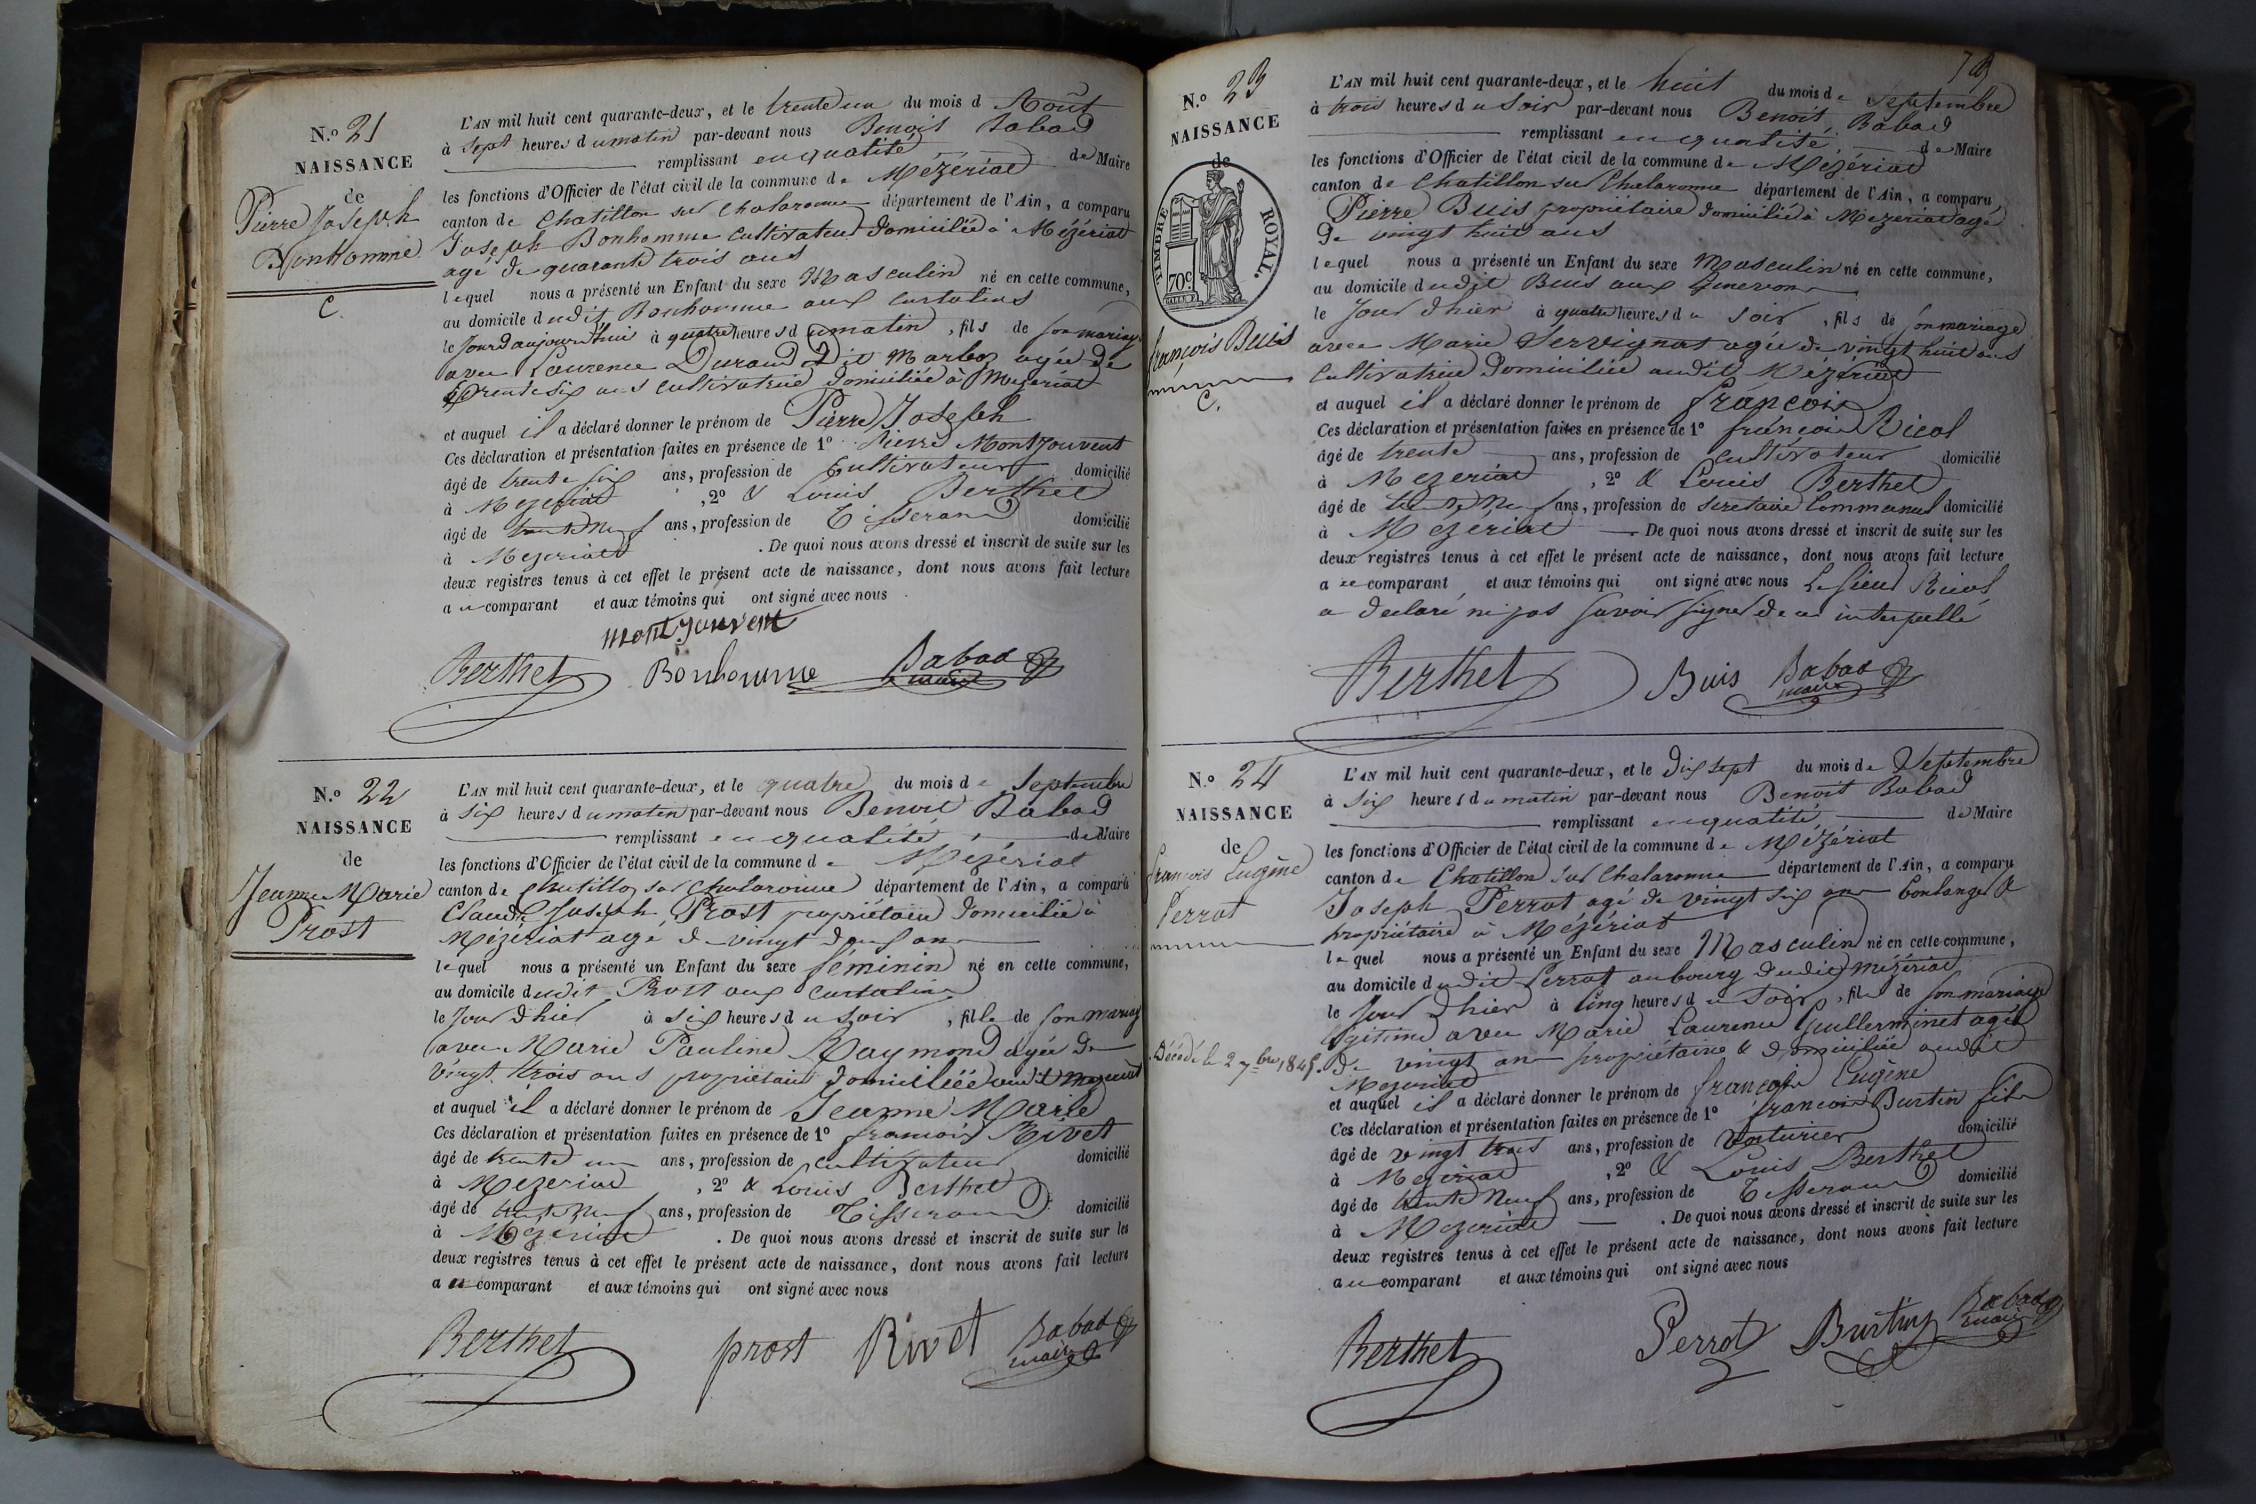 N.º 21
NAISSANCE
de
Pierre Joseph
Bonhomme
C.
L'AN mil huit cent quarante-deux, et le trente un du mois d Août
à sept heures du matin par-devant nous Benoit Babad
remplissant en qualité de Maire
les fonctions d'Officier de l'état civil de la commune de Mézériat
canton de Chatillon sur Chalaronne département de l'Ain, a comparu
Joseph Bonhomme cultivateur domicilié à Mézériat
agé de quarante trois ans
lequel nous a présenté un Enfant du sexe Masculin né en cette commune,
au domicile dudit Bonhomme aux
le Jourd'aujourd'hui à quatre heures du matin, fils de son mariage
avec Laurence Durand dit Marboz agée de
trente six ans cultivatrice domiciliée à Mezériat
et auquel il a déclaré donner le prénom de Pierre Joseph
Ces déclaration et présentation faites en présence de 1º Pierre Montjouvent
âgé de trente six ans, profession de Cultivateur domicilié
à Mezeriat, 2º & Louis Berthet
âgé de trente neuf ans, profession de Tisserand domicilié
à Mezeriat. De quoi nous avons dressé et inscrit de suite sur les
deux registres tenus à cet effet le présent acte de naissance, dont nous avons fait lecture
a u comparant et aux témoins qui ont signé avec nous
Montjouvent
Berthet Bonhomme Babad
maire
N.º 22
NAISSANCE
de
Jeanne Marie
Prost
L'AN mil huit cent quarante-deux, et le quatre du mois de Septembre
à six heures du matin par-devant nous Benoit Babad
remplissant en qualité de Maire
les fonctions d'Officier de l'état civil de la commune de Mézériat
canton de Chatillon sur Chalaronne département de l'Ain, a comparu
Claude Joseph Prost propriétaire domicilié à
Mézériat agé de vingt ans
lequel nous a présenté un Enfant du sexe féminin né en cette commune,
au domicile dudit Prost aux
le Jour d'hier à six heures du soir, fille de son mariage
avec Marie Pauline Raymond agée de
vingt trois ans propriétaire domiciliée audit Mezeriat
et auquel il a déclaré donner le prénom de Jeanne Marie
Ces déclaration et présentation faites en présence de 1º françois Rivet
âgé de trente un ans, profession de cultivateur domicilié
à Mezeriat, 2º & Louis Berthet
âgé de trente neuf ans, profession de Tisserand domicilié
à Mezeriat. De quoi nous avons dressé et inscrit de suite sur les
deux registres tenus à cet effet le présent acte de naissance, dont nous avons fait lecture
a u comparant et aux témoins qui ont signé avec nous
Berthet prost Rivet Babad
maire
N.º 23
NAISSANCE
de
TIMBRE ROYAL.
70 c.
françois Buis
C.
L'AN mil huit cent quarante-deux, et le huit du mois de Septembre
à trois heures du soir par-devant nous Benoit Babad
remplissant en qualité de Maire
les fonctions d'Officier de l'état civil de la commune de Mézériat
canton de Chatillon sur Chalaronne département de l'Ain, a comparu
Pierre Buis propriétaire domicilié à Mezeriat agé
de vingt huit ans
lequel nous a présenté un Enfant du sexe Masculin né en cette commune,
au domicile dudit Buis aux
le Jour d'hier à quatre heures du soir, fils de son mariage
avec Marie Servignat agée de vingt huit ans
cultivatrice domiciliée audit Mézériat
et auquel il a déclaré donner le prénom de françois
Ces déclaration et présentation faites en présence de 1º françois Ricol
âgé de trente ans, profession de cultivateur domicilié
à Mezeriat, 2º & Louis Berthet
âgé de trente neuf ans, profession de secretaire Communal domicilié
à Mezeriat De quoi nous avons dressé et inscrit de suite sur les
deux registres tenus à cet effet le présent acte de naissance, dont nous avons fait lecture
a u comparant et aux témoins qui ont signé avec nous Le sieur Ricol
a declaré ne pas savoir signer de ce interpellé
Berthet Buis Babad
maire
N.º 24
NAISSANCE
de
francois Eugène
Perrot
Décédé le 2 7bre 1845.
L'AN mil huit cent quarante-deux, et le dix sept du mois de Septembre
à six heures du matin par-devant nous Benoit Babad
remplissant en qualité de Maire
les fonctions d'Officier de l'état civil de la commune de Mézériat
canton de Chatillon sur Chalaronne département de l'Ain, a comparu
Joseph Perrot agé de vingt six ans boulanger &
propriétaire à Mézériat
lequel nous a présenté un Enfant du sexe Masculin né en cette commune,
au domicile dudit Perrot au bourg dudit Mézériat
le Jour d'hier à cinq heures du soir, fils de son mariage
légitime avec Marie Laurence Guillerminet agée
de vingt ans propriétaire & domiciliée audit
Mezeriat
et auquel il a déclaré donner le prénom de françois Eugène
Ces déclaration et présentation faites en présence de 1º francois Burtin fils
âgé de vingt trois ans, profession de voiturier domicilié
à Mezeriat, 2º & Louis Berthet
âgé de trente neuf ans, profession de Tisserand domicilié
à Mezeriat. De quoi nous avons dressé et inscrit de suite sur les
deux registres tenus à cet effet le présent acte de naissance, dont nous avons fait lecture
a u comparant et aux témoins qui ont signé avec nous
Berthet Perrot Burtin Babad
maire